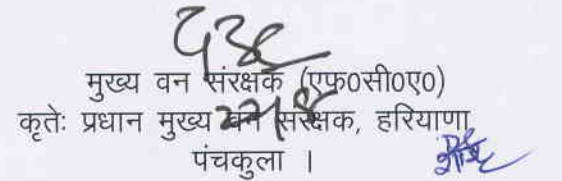 मुख्य वन संरक्षक (एफ०सी०ए०)
कृतेः प्रधान मुख्य वन संरक्षक, हरियाणा
पंचकुला ।